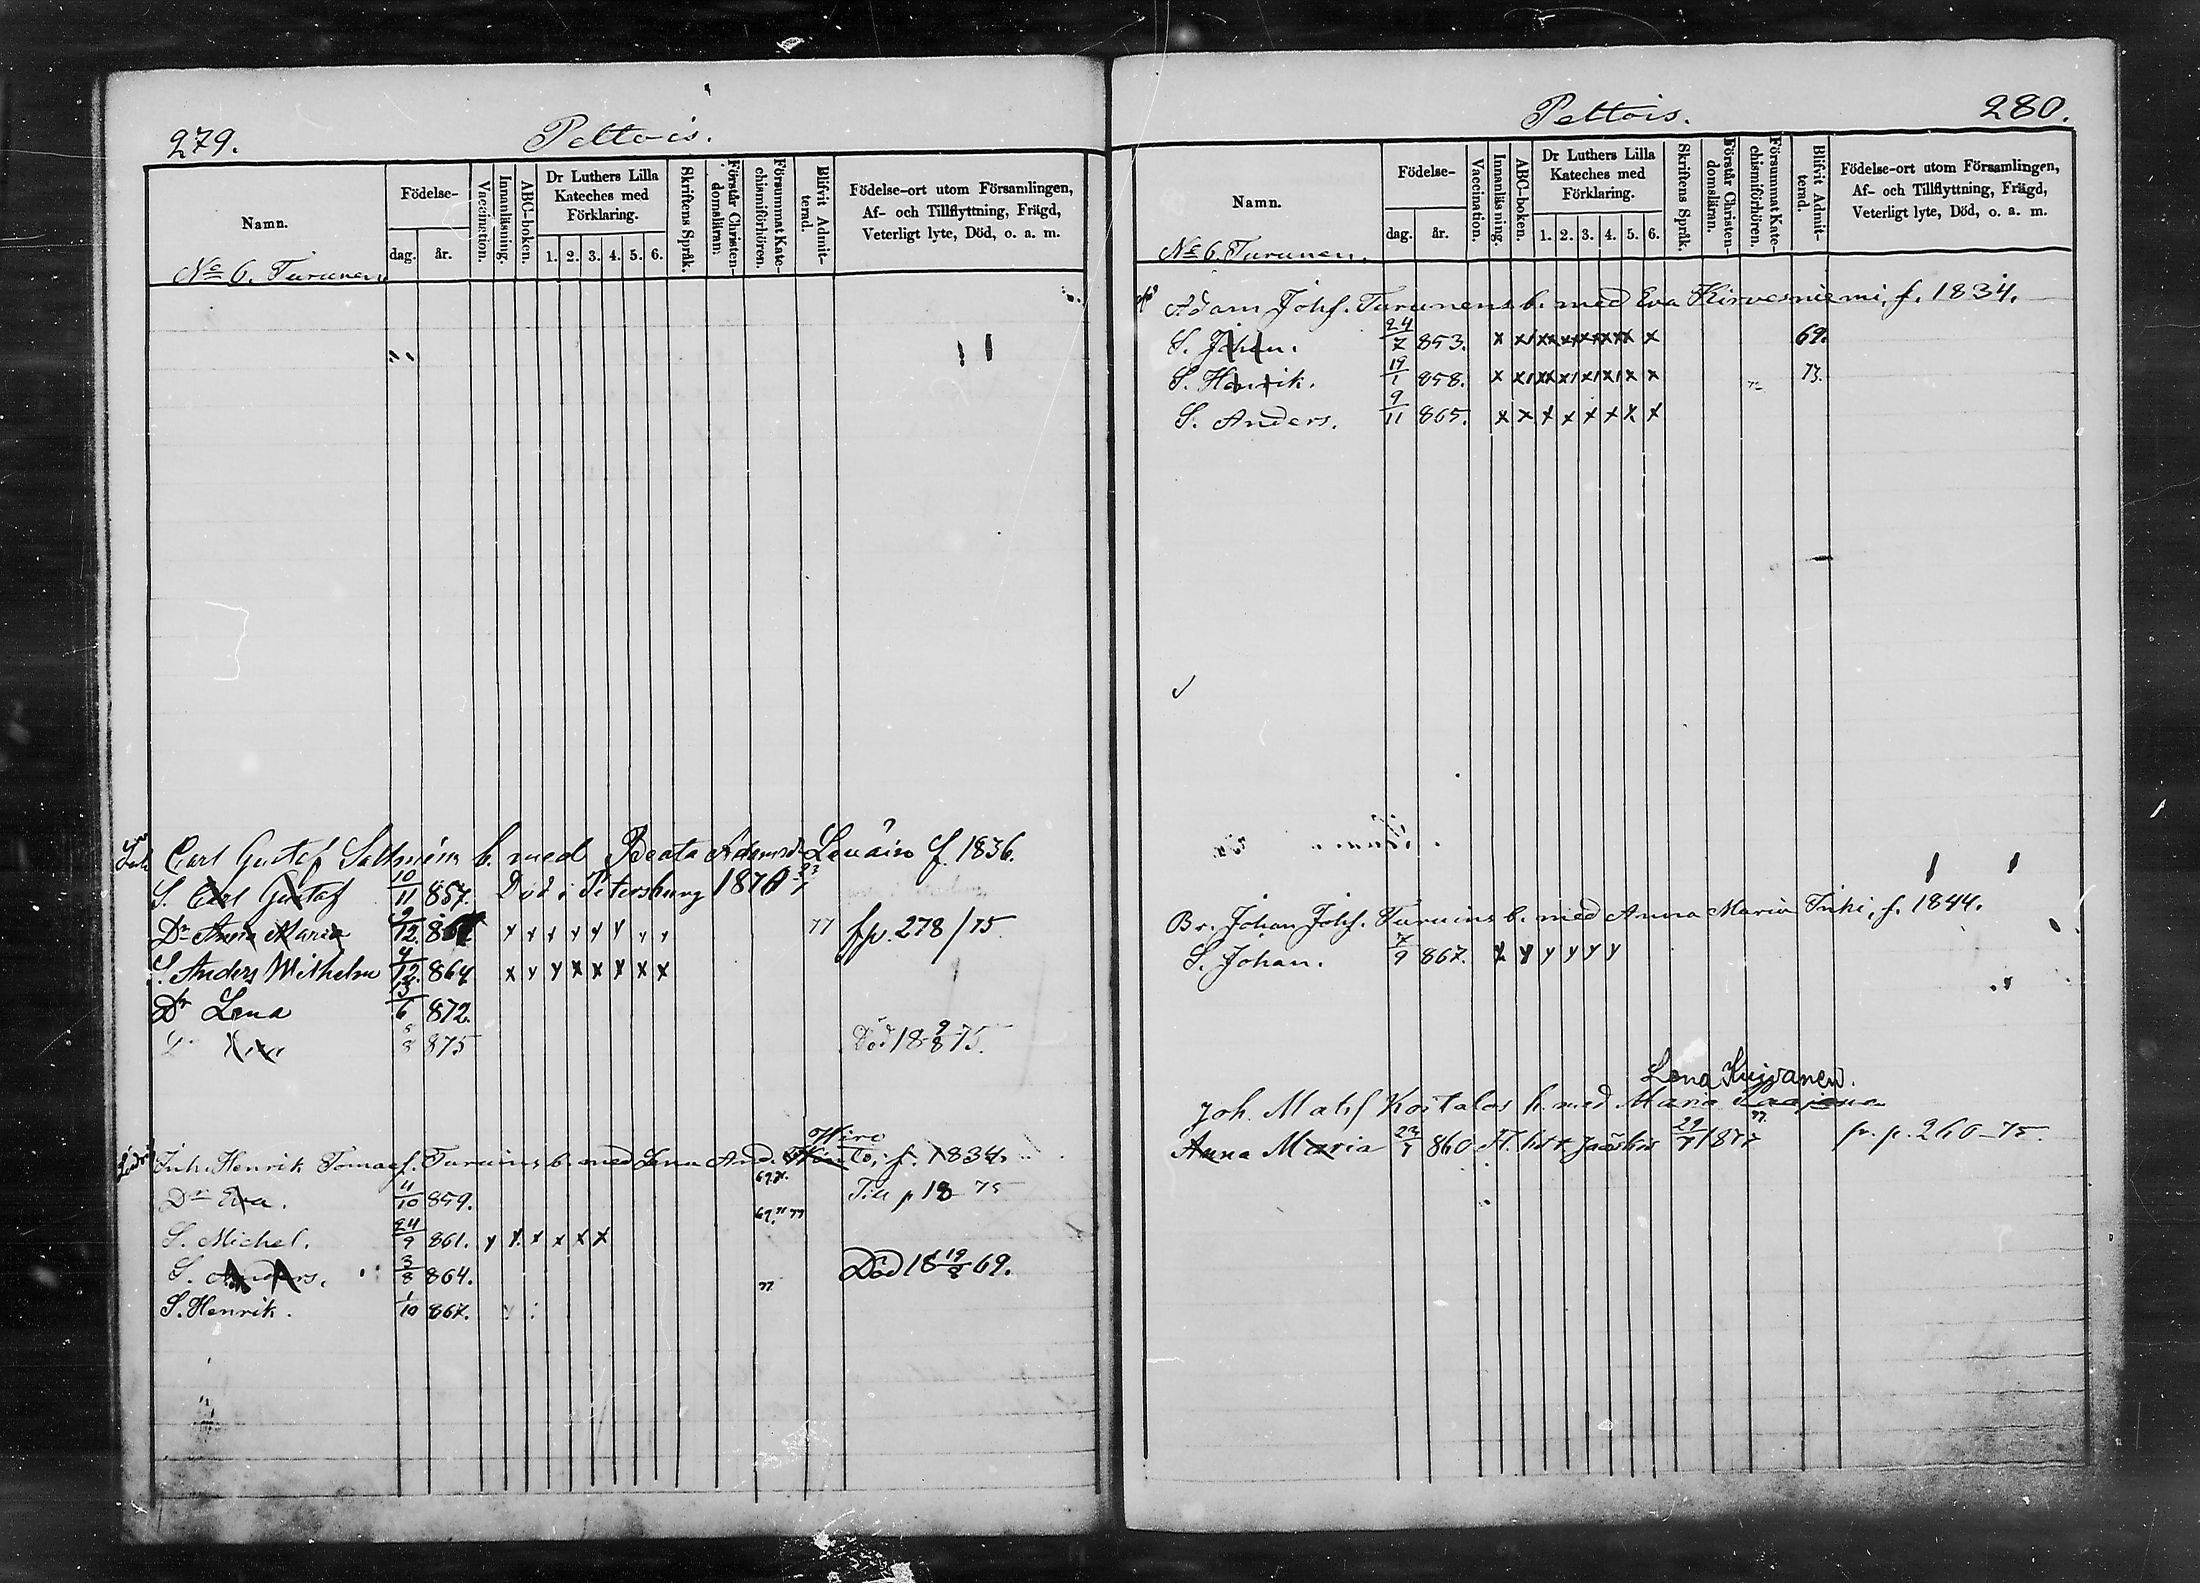 279.
Peltois.
Namn.
Födelse-
dag. år.
Vaccination.
Innanläsning.
ABC-boken.
Dr Luthers Lilla
Kateches med
Förklaring.
1. 2. 3. 4. 5. 6.
Skriftens Språk.
Förstår Christen-
domsläran.
Försummat Kate-
chismiförhören.
Blifvit Admit-
terad.
Födelse-ort utom Församlingen,
Af- och Tillflyttning, Frägd,
Veterligt lyte, Död, o. a. m.
No 6. Turunen
Carl Gustaf b. med Beata f. 1836.
S. Carl Gustaf 10/11 857. Död i Petersburg
Dr Anna Maria 12. x x x x x x x x 77 fp. 278/75
S. Anders Wilhelm 4/12 864 x x x x x x x x
Dr Lena 13/6 872.
8 875 Död 18 9/8 75.
Inh. Henrik Tomasf. b. med Lena And. f. 1834.
69.
Dr Eva. 11/10 859. Till p 18 75
S. Michel. 24/9 861. x x x x x x
S. Anders. 3/8 864. Död 18 19/8 69.
77
S. Henrik. 1/10 867.
Peltois.
280.
Namn.
Födelse-
dag. år.
Vaccination.
Innanläsning.
ABC-boken.
Dr Luthers Lilla
Kateches med
Förklaring.
1. 2. 3. 4. 5. 6.
Skriftens Språk.
Förstår Christen-
domsläran.
Försummat Kate-
chismiförhören.
Blifvit Admit-
terad.
Födelse-ort utom Församlingen,
Af- och Tillflyttning, Frägd,
Veterligt lyte, Död, o. a. m.
No 6. Turunen.
Adam Johf. Turunens b. med Eva Kirvesniemi, f. 1834.
S. Johan. 24/7 853. 69.
S. Henrik. 19/1 858. 73.
S. Anders. 9/11 865. x x x x x x x x
Br. Johan Johf. b. med Anna Maria Inki, f. 1844.
S. Johan. 7/9 867. x x x x x x
Lena Kujvanen.
Joh. Matsf b. med Maria
Anna Maria 23/7 860 fr. p. 260-75.